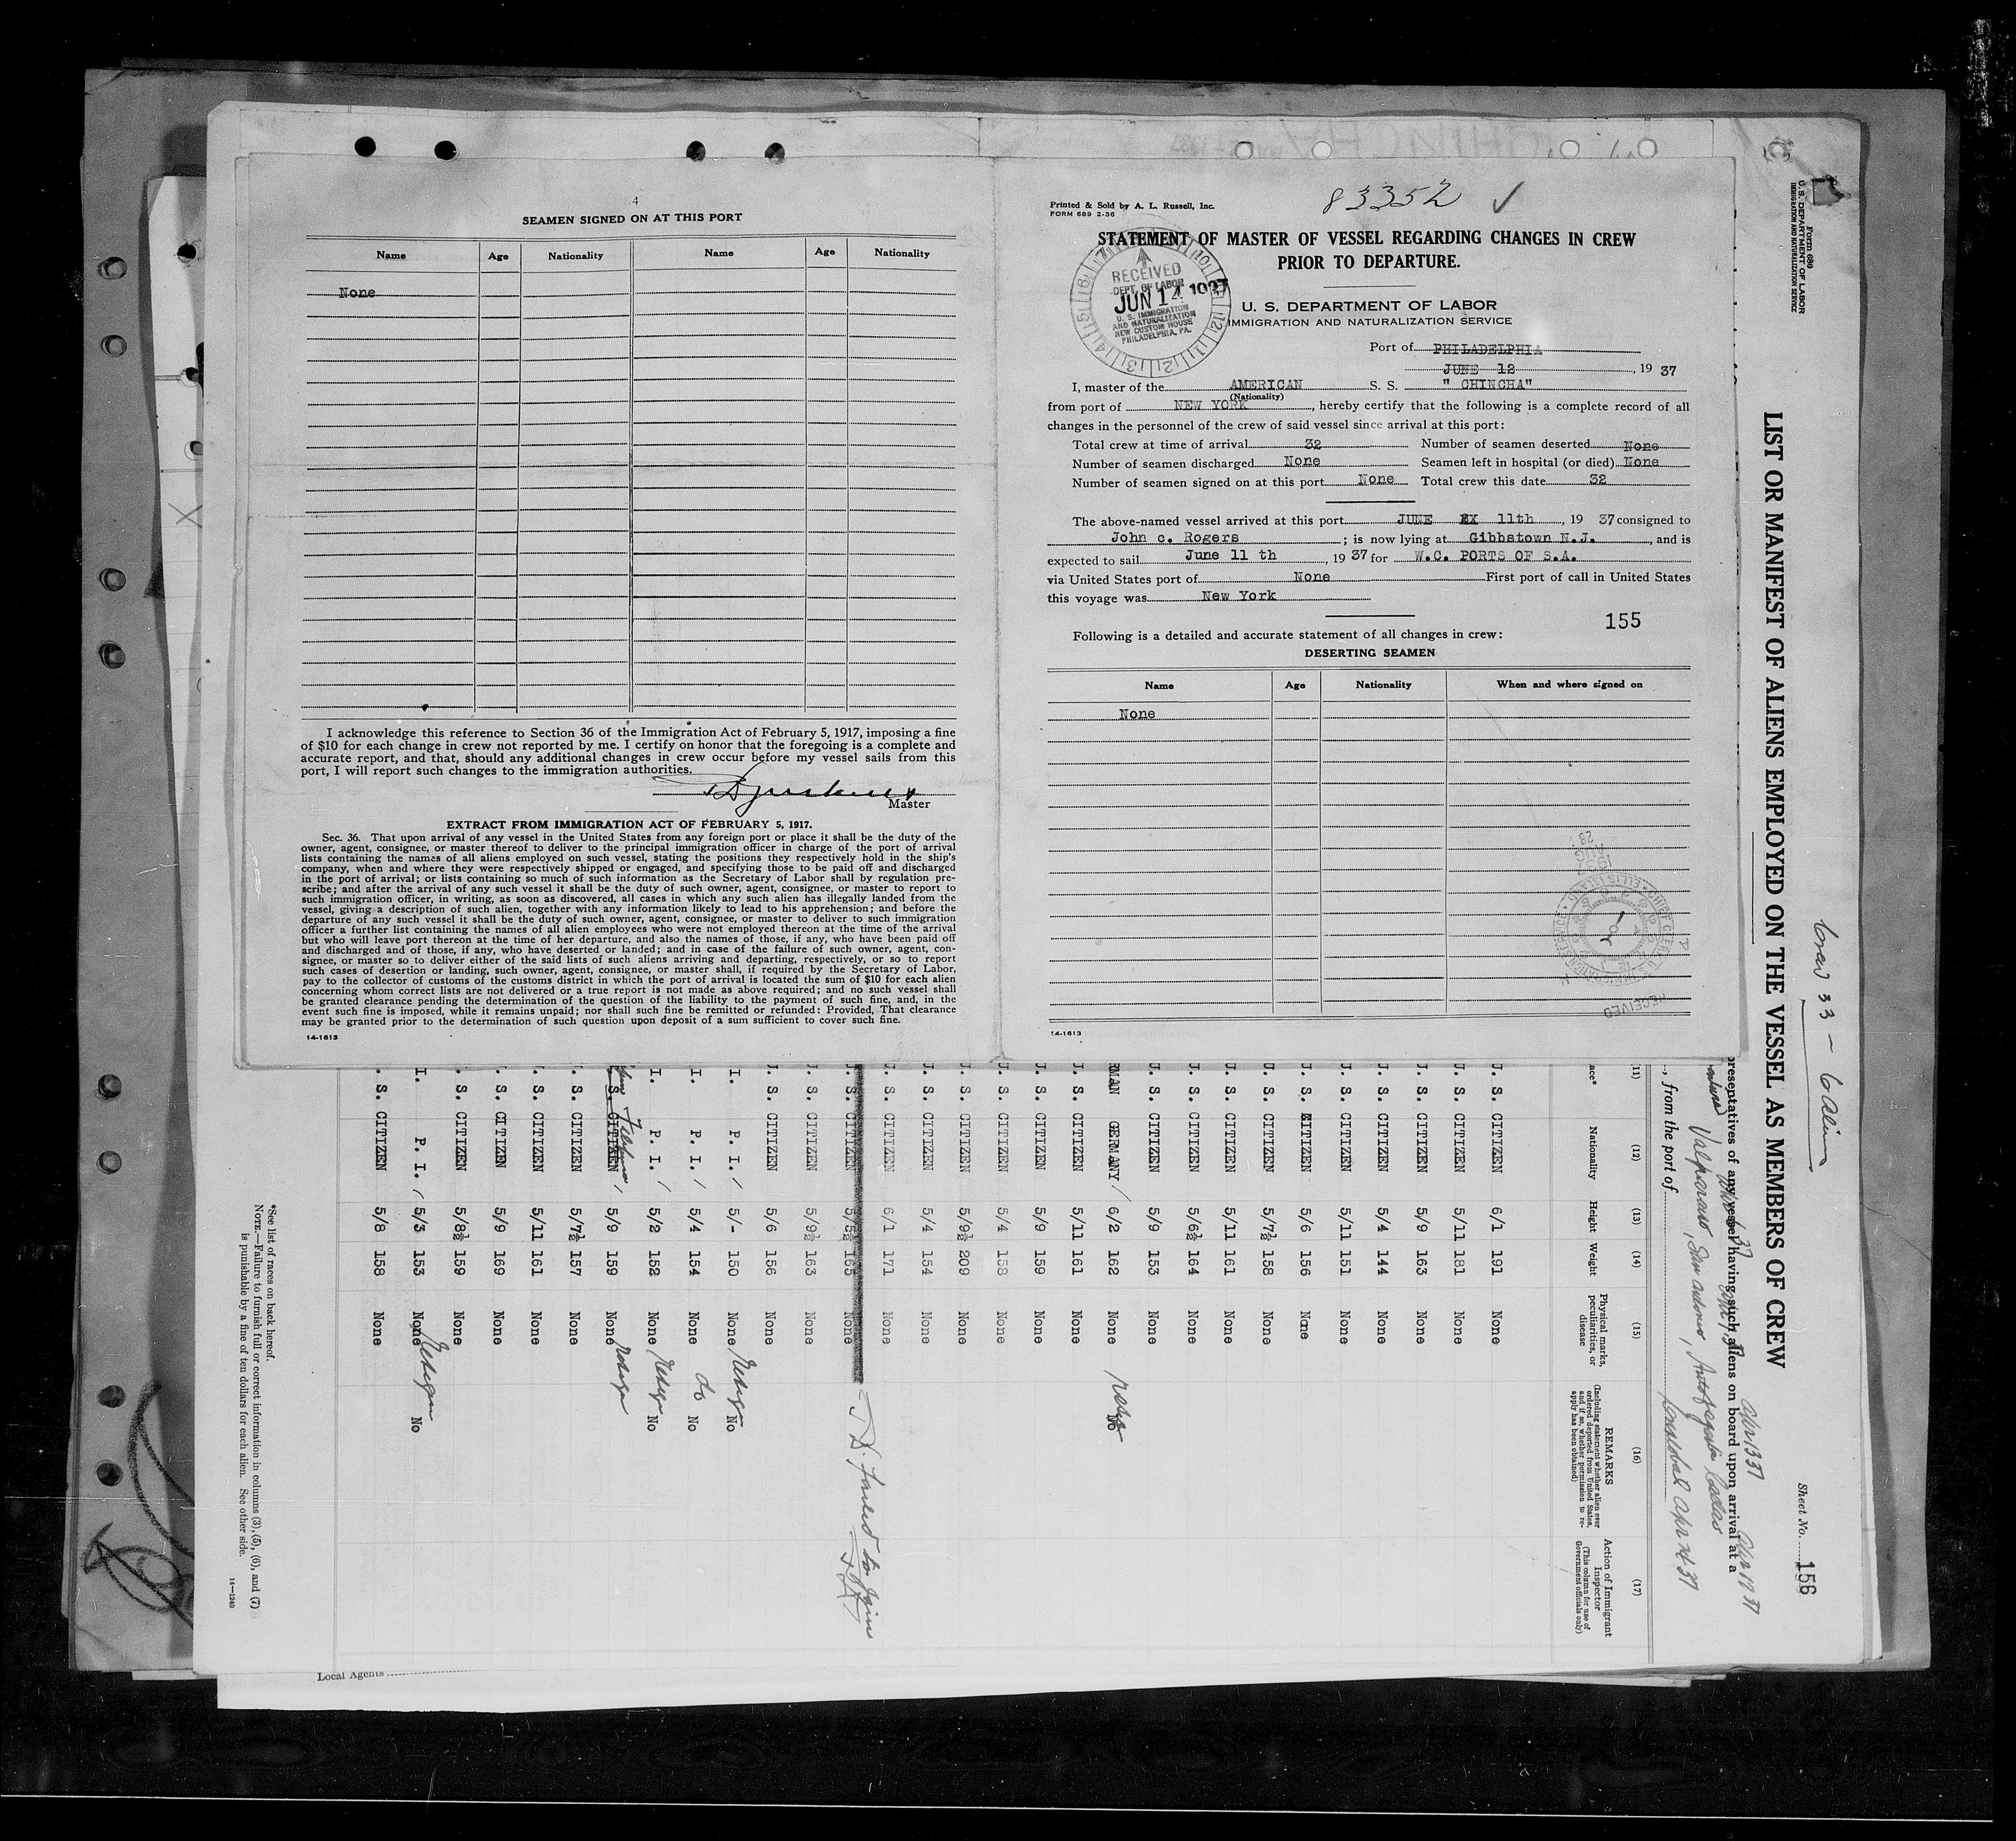 4
SEAMEN SIGNED ON AT THIS PORT
Name Age Nationality Name Age Nationality
None
I acknowledge this reference to Section 36 of the Immigration Act of February 5, 1917, imposing a fine
of $10 for each change in crew not reported by me. I certify on honor that the foregoing is a complete and
accurate report, and that, should any additional changes in crew occur before my vessel sails from this
port, I will report such changes to the immigration authorities.
Master
EXTRACT FROM IMMIGRATION ACT OF FEBRUARY 5, 1917.
Sec. 36. That upon arrival of any vessel in the United States from any foreign port or place it shall be the duty of the
owner, agent, consignee, or master thereof to deliver to the principal immigration officer in charge of the port of arrival
lists containing the names of all aliens employed on such vessel, stating the positions they respectively hold in the ship's
company, when and where they were respectively shipped or engaged, and specifying those to be paid off and discharged
in the port of arrival; or lists containing so much of such information as the Secretary of Labor shall by regulation pre-
scribe; and after the arrival of any such vessel it shall be the duty of such owner, agent, consignee, or master to report to
such immigration officer, in writing, as soon as discovered, all cases in which any such alien has illegally landed from the
vessel, giving a description of such alien, together with any information likely to lead to his apprehension; and before the
departure of any such vessel it shall be the duty of such owner, agent, consignee, or master to deliver to such immigration
officer a further list containing the names of all alien employees who were not employed thereon at the time of the arrival
but who will leave port thereon at the time of her departure, and also the names of those, if any, who have been paid off
and discharged and of those, if any, who have deserted or landed; and in case of the failure of such owner, agent, con-
signee, or master so to deliver either of the said lists of such aliens arriving and departing, respectively, or so to report
such cases of desertion or landing, such owner, agent, consignee, or master shall, if required by the Secretary of Labor,
pay to the collector of customs of the customs district in which the port of arrival is located the sum of $10 for each alien
concerning whom correct lists are not delivered or a true report is not made as above required; and no such vessel shall
be granted clearance pending the determination of the question of the liability to the payment of such fine, and, in the
event such fine is imposed, while it remains unpaid; nor shall such fine be remitted or refunded: Provided, That clearance
may be granted prior to the determination of such question upon deposit of a sum sufficient to cover such fine.
14-1613
Printed & Sold by A. L. Russell, Inc.
FORM 689 2-36
83352 ✓
STATEMENT OF MASTER OF VESSEL REGARDING CHANGES IN CREW
PRIOR TO DEPARTURE.
RECEIVED
DEPT. OF LABOR
JUN 14 1937
U. S. IMMIGRATION
AND NATURALIZATION
NEW CUSTOM HOUSE
PHILADELPHIA, PA.
U. S. DEPARTMENT OF LABOR
IMMIGRATION AND NATURALIZATION SERVICE
Port of PHILADELPHIA
JUNE 12, 19 37
I, master of the AMERICAN S. S. " CHINCHA"
(Nationality)
from port of NEW YORK, hereby certify that the following is a complete record of all
changes in the personnel of the crew of said vessel since arrival at this port:
Total crew at time of arrival 32 Number of seamen deserted None
Number of seamen discharged None Seamen left in hospital (or died) None
Number of seamen signed on at this port None Total crew this date 32
The above-named vessel arrived at this port JUNE 11th, 19 37 consigned to
John c. Rogers; is now lying at Gibbstown N.J., and is
expected to sail June 11 th, 19 37 for W.C. PORTS OF S.A.
via United States port of None First port of call in United States
this voyage was New York
155
Following is a detailed and accurate statement of all changes in crew:
DESERTING SEAMEN
Name Age Nationality When and where signed on
None
RECEIVED
14-1613
Form 680
U. S. DEPARTMENT OF LABOR
IMMIGRATION AND NATURALIZATION SERVICE
LIST OR MANIFEST OF ALIENS EMPLOYED ON THE VESSEL AS MEMBERS OF CREW
Crew 33 - 6 Alien
Sheet No. 156
presentatives of any vessel having such aliens on board upon arrival at a
Apr 13 37
Valparaiso, San Antonio, Antofagasta
Cristobal Apr 24 37
, from the port of
(11) (12) (13) (14) (15) (16) (17)
Nationality Height Weight Physical marks, peculiarities, or disease REMARKS (Including statement whether alien ever ordered deported from United States, and if so, whether permission to re-apply has been obtained) Action of Immigrant Inspector (This column for use of Government officials only)
. S. CITIZEN 6/1 191 None
. S. CITIZEN 5/11 181 None
. S. CITIZEN 5/9 163 None
. S. CITIZEN 5/4 144 None
. S. CITIZEN 5/11 151 None
. S. CITIZEN 5/6 156 None
. S. CITIZEN 5/7½ 158 None
. S. CITIZEN 5/11 161 None
. S. CITIZEN 5/6½ 164 None
. S. CITIZEN 5/9 153 None
RMAN GERMANY 6/2 162 None No
. S. CITIZEN 5/11 161 None
. S. CITIZEN 5/9 159 None
. S. CITIZEN 5/4 158 None
. S. CITIZEN 5/9½ 209 None
. S. CITIZEN 5/4 154 None
. S. CITIZEN 6/1 171 None
. S. CITIZEN 5/5½ 165 None Failed to join
. S. CITIZEN 5/9½ 163 None
. S. CITIZEN 5/6 156 None
I. P. I. 5/- 150 None No
I. P. I. 5/4 154 None do No
I. P. I. 5/2 152 None No
. S. CITIZEN 5/9 159 None
. S. CITIZEN 5/7½ 157 None
. S. CITIZEN 5/11 161 None
. S. CITIZEN 5/9 169 None
. S. CITIZEN 5/8½ 159 None
I. P. I. 5/3 153 None No
. S. CITIZEN 5/8 158 None
*See list of races on back hereof.
NOTE.—Failure to furnish full or correct information in columns (3), (5), (6), and (7)
is punishable by a fine of ten dollars for each alien. See other side.
14-1240
Local Agents